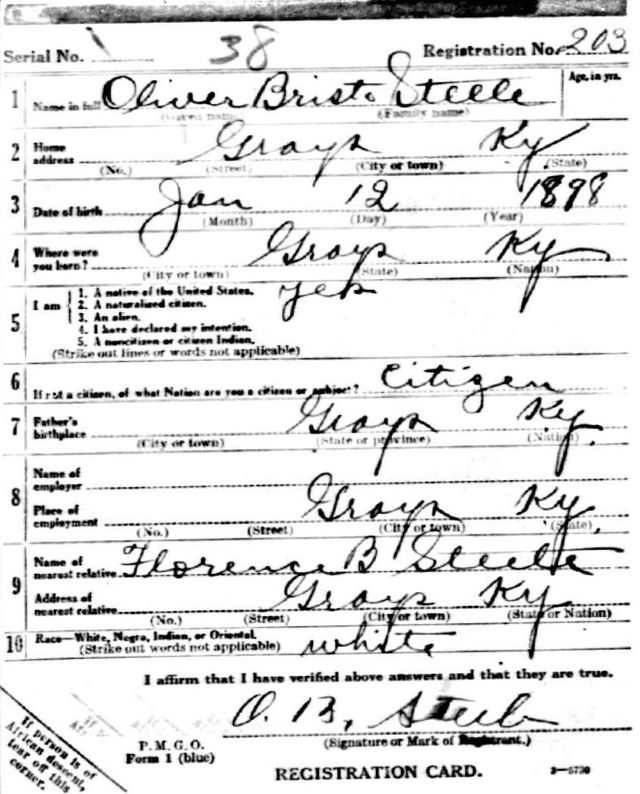 Serial No. 38 Registration No. 203
1 Name in full Oliver Bristo Steele Age, in yrs.
(Given name) (Family name)
2 Home address Grays Ky
(No.) (Street) (City or town) (State)
3 Date of birth Jan 12 1898
(Month) (Day) (Year)
4 Where were you born? Grays Ky
(City or town) (State) (Nation)
5 I am
1. A native of the United States. yes
2. A naturalized citizen.
3. An alien.
4. I have declared my intention.
5. A noncitizen or citizen Indian.
(Strike out lines or words not applicable)
6 If not a citizen, of what Nation are you a citizen or subject? Citizen
7 Father's birthplace Grays Ky.
(City or town) (State or province) (Nation)
8 Name of employer
Place of employment Grays Ky
(No.) (Street) (City or town) (State)
9 Name of nearest relative Florence B Steele
Address of nearest relative Grays Ky
(No.) (Street) (City or town) (State or Nation)
10 Race—White, Negro, Indian, or Oriental. white
(Strike out words not applicable)
I affirm that I have verified above answers and that they are true.
O. B. Steele
(Signature or Mark of Registrant.)
P. M. G. O.
Form 1 (blue)
REGISTRATION CARD. 3—5730
If person is of
African descent,
tear off this
corner.